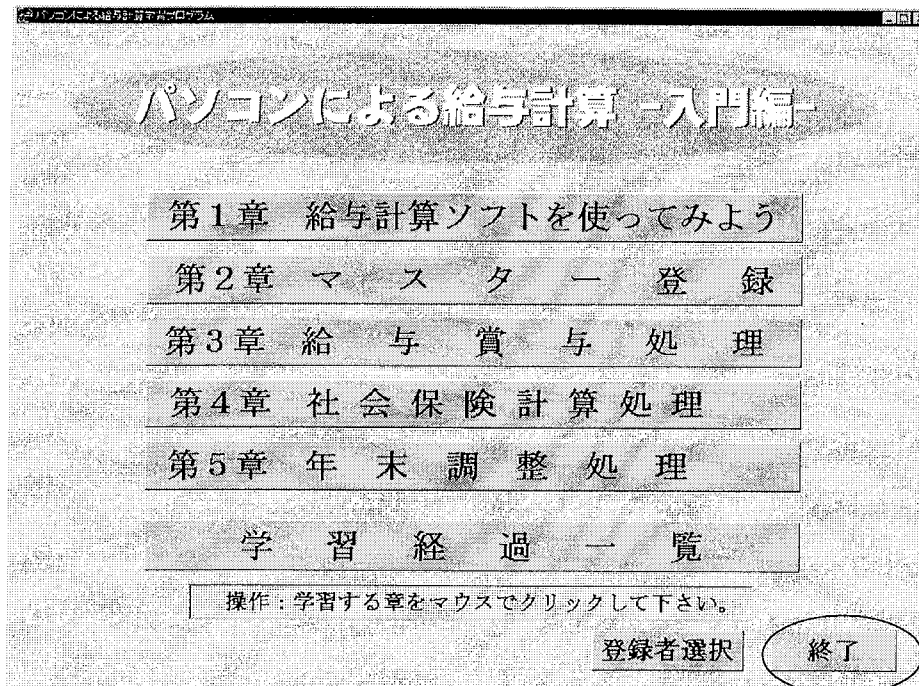 パソコンによる給与計算学習プログラム
パソコンによる給与計算 -入門編-
第1章 給与計算ソフトを使ってみよう
第2章 マスター登録
第3章 給与賞与処理
第4章 社会保険計算処理
第5章 年末調整処理
学習経過一覧
操作：学習する章をマウスでクリックして下さい。
登録者選択 終了